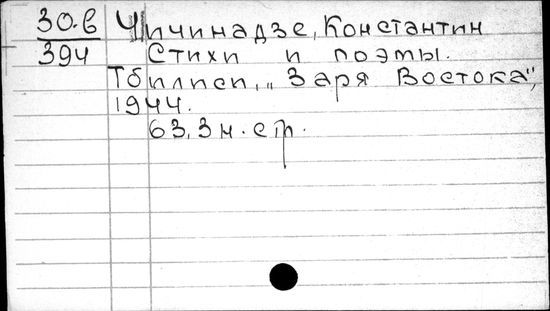 30.в Чичинадзе, Константин
394 Стихи и поэмы.
Тбилиси, „Заря Востока",
1944.
63, 3 н. стр.